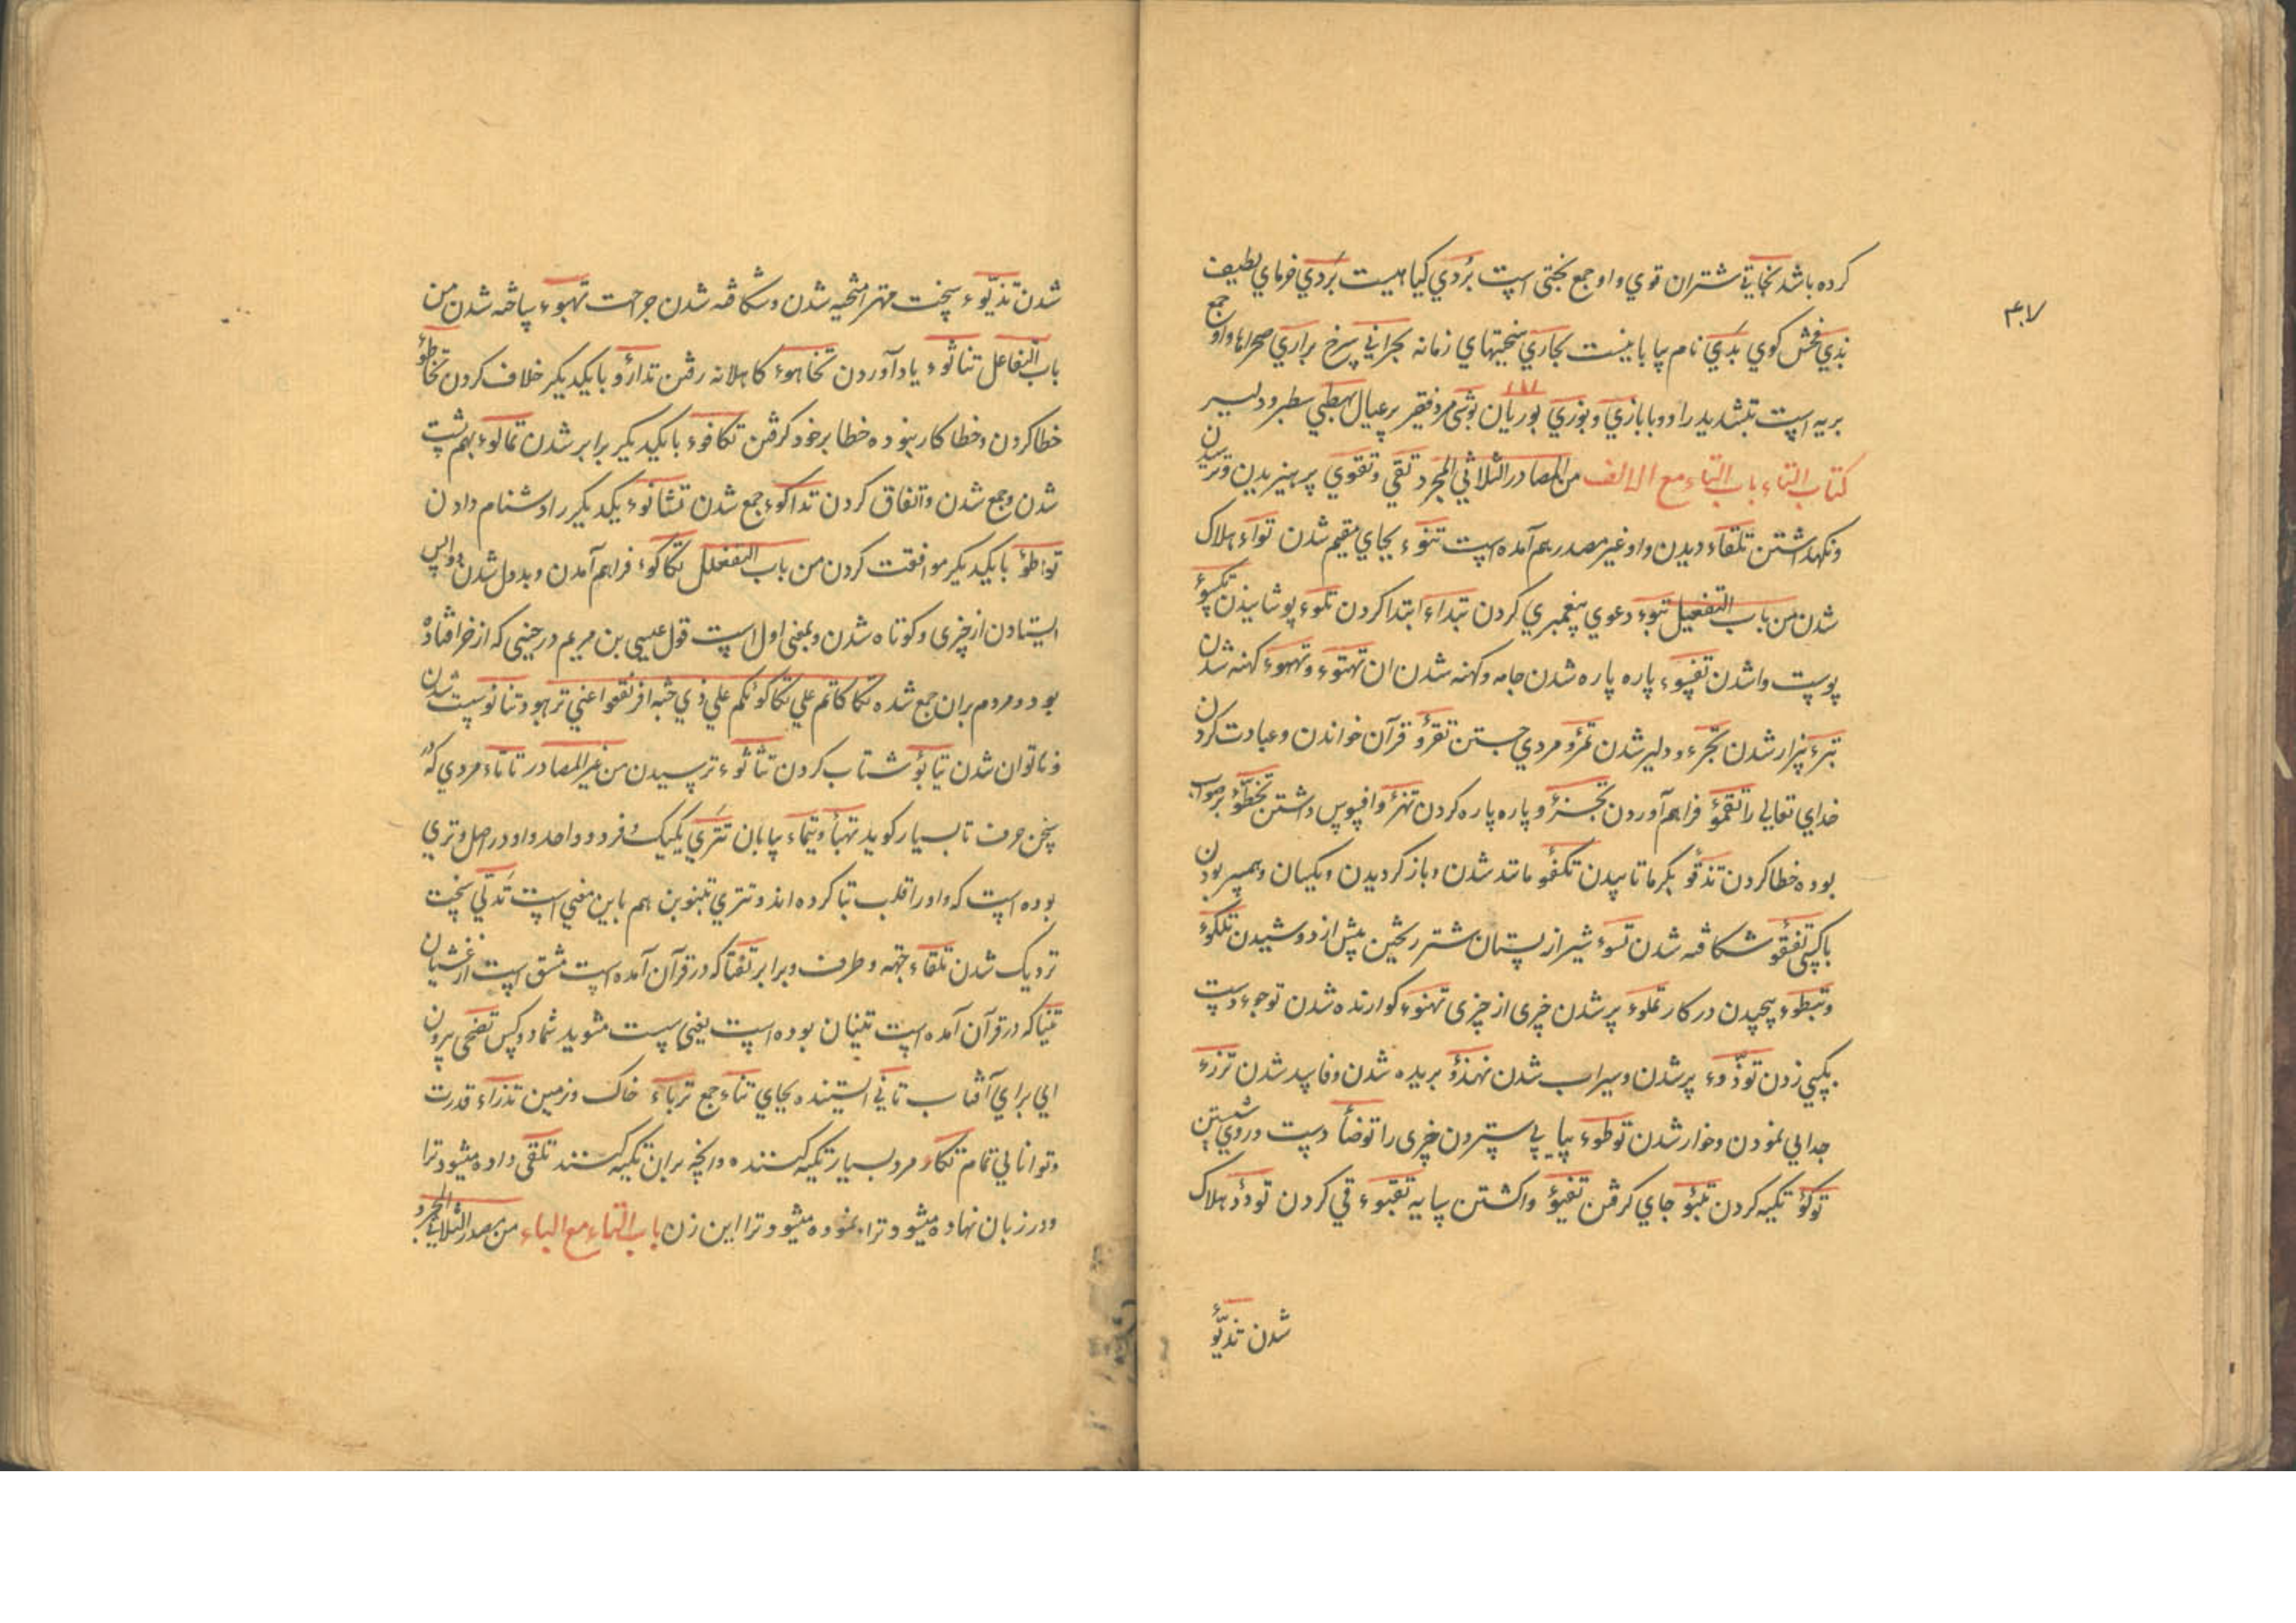 کرده باشد بخاتی شتران قوی و او جمع بختی است بُردی کیاهیست بَردی خرمای لطیف
بذی فحش کوی بدی نام بیابانیست بجاری سختیهای زمانه بحرانی سرخ براری صحراها و او جمع
بریه است بتشدید را و وبازی وبوزی بوریان بوشی مرد فقیر پرعیال بهطی سطبر و دلیر
کتاب التاء باب التاء مع الالف من المصادر الثلاثی المجرد تقی وتقوی پرهیزیدن وترسیدن
ونکهداشتن تلقاء دیدن واو غیر مصدر هم آمده است تنوء بجای مقیم شدن تواء هلاک
شدن من باب التفعیل تنبوء دعوی پیغمبری کردن تبداء ابتدا کردن تکوء پوشانیدن تکسوء
پوست واشدن تفسوء پاره پاره شدن جامه وکهنه شدن ان تهتوء وتههوء کهنه شدن
تبرء بیزار شدن تجرء ودلیر شدن تمرؤ مردی جستن تقرؤ قرآن خواندن وعبادت کردن
خدای تعالی را تقمؤ فراهم آوردن تجزؤ پاره پاره کردن تهزؤ وافسوس داشتن تخطؤ برصواب
بوده خطا کردن تدفؤ بکرما تاسیدن تکفؤ مانند شدن وباز کردیدن ویکسان وهمسر بودن
با کسی تفقؤ شکافته شدن تسوء شیر از پستان شتر ریختن پیش از دوشیدن تلکؤ
وتبطوء پیچیدن در کار تملوء پر شدن چیزی از چیزی تهنوء کوارنده شدن توجوء دست
بکسی زدن توذوء پر شدن وسیراب شدن تهذؤ بریده شدن وفاسد شدن ترزء
جدایی نمودن وخوار شدن توطوء بپای سپردن چیزی را توضأ دست وروی شستن
توکؤ تکیه کردن تبؤ جای کرفتن تفیؤ واکشتن سایه تقیوء قی کردن تودؤ هلاک
شدن تذیؤ
شدن تذیؤ سخت مهرا پخته شدن وشکافته شدن جراحت تهبوء ساخته شدن من
باب التفاعل تناثوء یاد آوردن تخاهوء کاهلانه رفتن تدارؤ با یکدیکر خلاف کردن تخاطؤ
خطا کردن وخطا کار نبوده خطا بر خود کرفتن تکافوء با یکدیکر برابر شدن تمالوء بهم پشت
شدن وجمع شدن واتفاق کردن تداکوء جمع شدن تشانوء یکدیکر را دشنام دادن
تواطؤ با یکدیکر موافقت کردن من باب التفعلل تکاکوء فراهم آمدن وبددل شدن وواپس
ایستادن از چیزی وکوتاه شدن وبمعنی اول است قول عیسی بن مریم در حینی که از خر افتاده
بود ومردم بران جمع شده تکاکاتم علی تکاکؤکم علی ذی جنه افرنقعوا عنی تر بود تنانؤ سست شدن
وناتوان شدن تیابؤ شتاب کردن تثاثوء ترسیدن من غیر المصادر تاتاء مردی که در
سخن حرف تا بسیار کوید تهبأ وتیماء بیابان تتری یکیک وفرد وواحد واو در اصل وتری
بوده است که واو را قلب بتا کرده اند وتتری بتنوین هم باین معنی است تدلی سخت
نزدیک شدن تلقاء جهه وطرف وبرابر تغشا که در قرآن آمده است مشتق است از غشیان
تنیا که در قرآن آمده است تنیان بوده است یعنی سست مشوید شما دو کس تضحی بیرون
ایی برای آفتاب تانی ایستنده بجای تناء جمع ترباء خاک وزمین تدراء قدرت
وتوانایی تمام تکاء مرد بسیار تکیه کننده وانچه بران تکیه کنند تلقی داده میشود ترا
ودر زبان نهاده میشود ترا ونموده میشود ترا این زن باب التاء مع الباء من مصدر الثلاثی المجرد